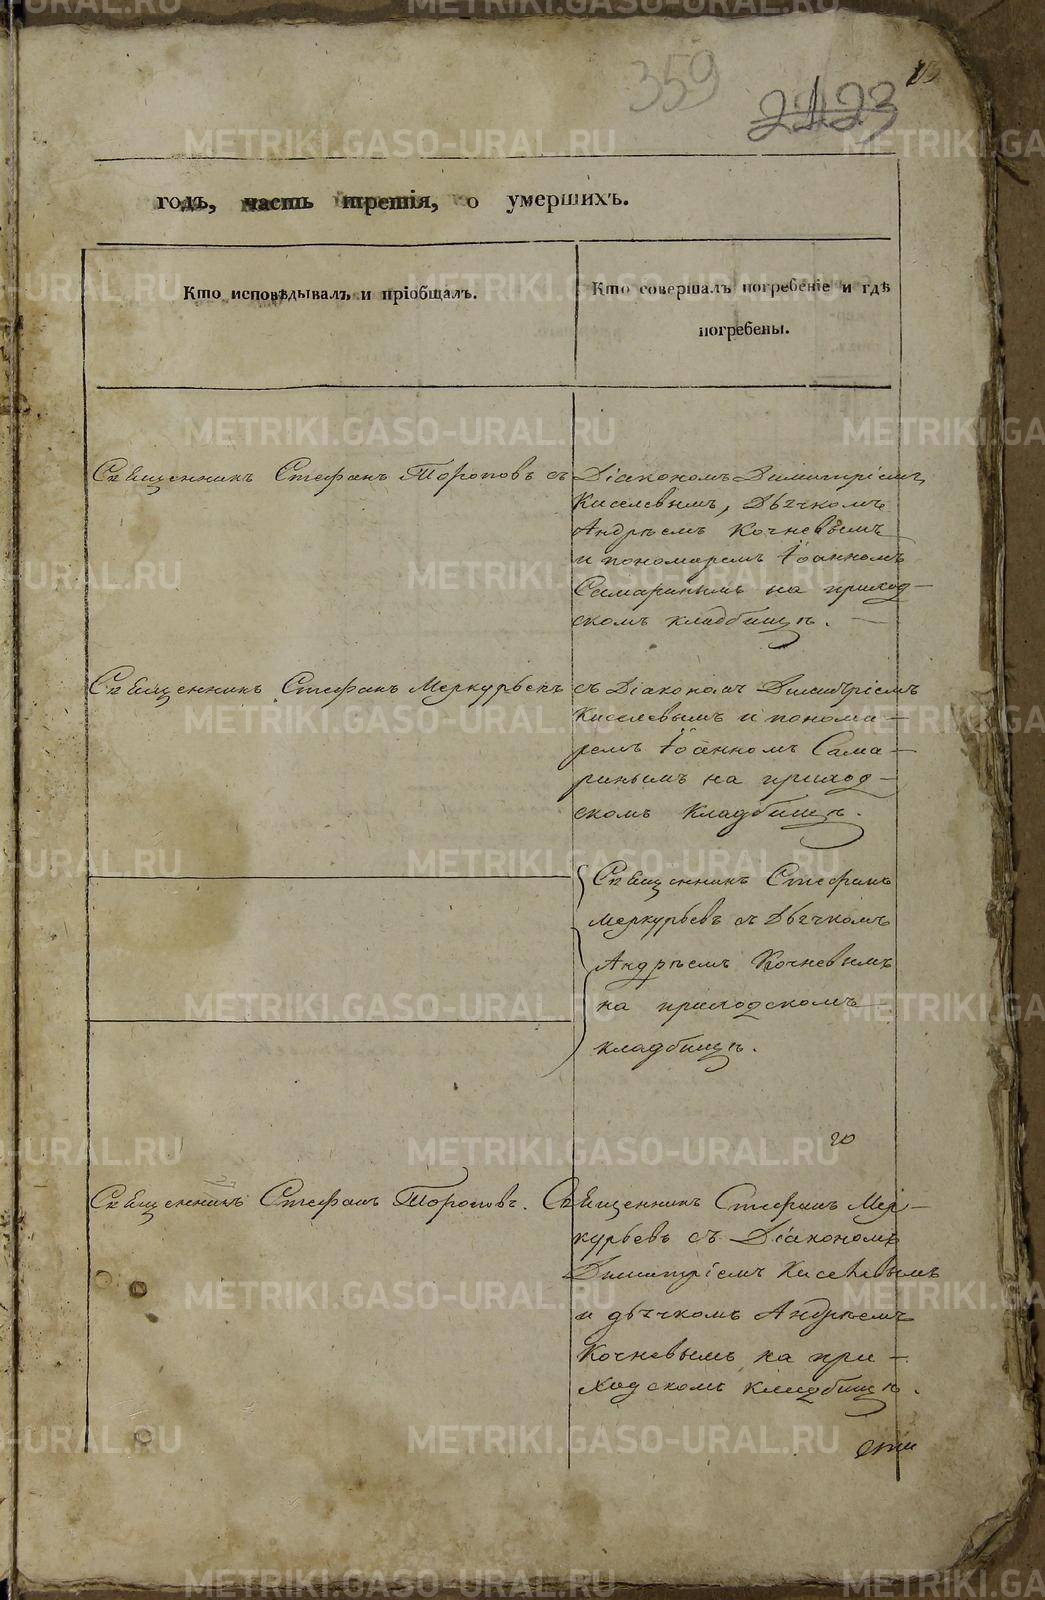 359
2123
годъ, часть третія, о умершихъ.
Кто исповѣдывалъ и пріобщалъ.
Кто совершалъ погребеніе и гдѣ
погребены.
Священникъ Стефанъ Тороповъ съ Діакономъ Димитріемъ
Киселевымъ, Дьячкомъ
Андрѣемъ Кочневымъ
и пономаремъ Іоанномъ
Самаринымъ на приход-
скомъ кладбищѣ.
Священникъ Стефанъ Меркурьевъ съ Діакономъ Димитріемъ
Киселевымъ и понома-
ремъ Іоанномъ Сама-
ринымъ на приход-
скомъ кладбищѣ.
Священникъ Стефанъ
Меркурьевъ съ Дьячкомъ
Андрѣемъ Кочневымъ
на приходскомъ
кладбищѣ.
Священникъ Стефанъ Тороповъ. Священникъ Стефанъ Мер-
курьевъ съ Діакономъ
Димитріемъ Киселевымъ
и дьячкомъ Андрѣемъ
Кочневымъ на при-
ходскомъ кладбищѣ.
METRIKI.GASO-URAL.RU